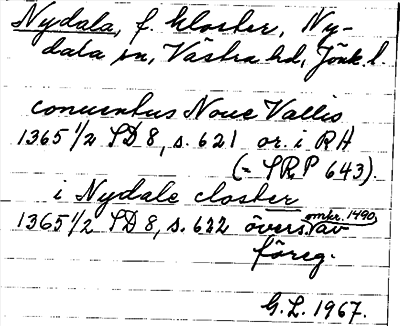 Nydala, f. kloster, Ny-
dala sn, Västra hd, Jönk. l.
conuentus Noue Vallis
1365 1/2 SD 8, s. 621 or. i RH
(= SRP 643).
i Nydale closter
omkr. 1490
1365 1/2 SD 8, s. 622 övers. av
föreg.
G.L. 1967.